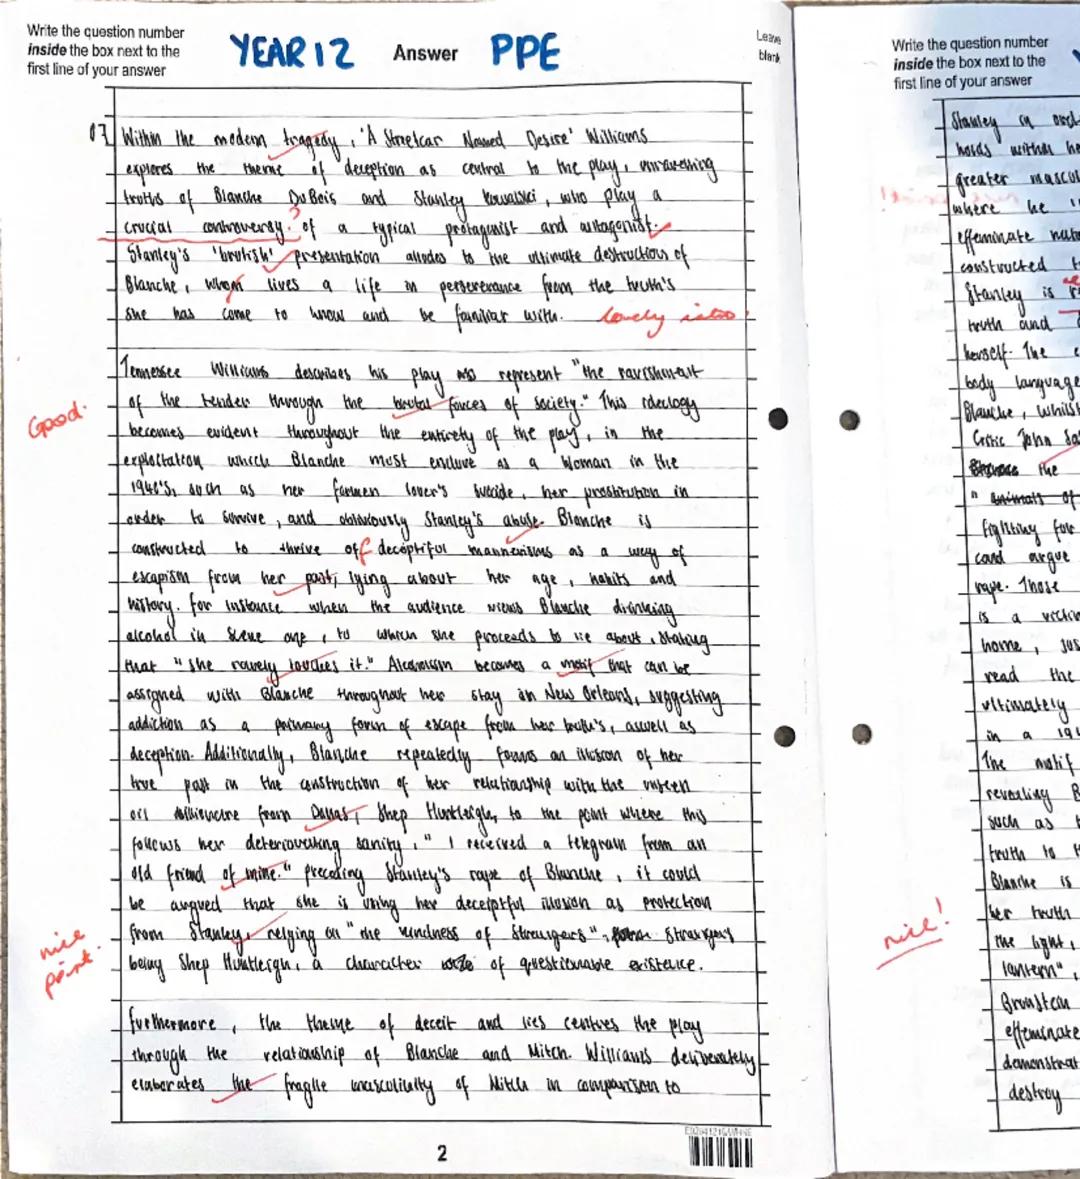 Write the question number
inside the box next to the
first line of your answer
YEAR 12 Answer PPE
Leave
blank
07 Within the modern tragedy, 'A Streetcar Named Desire' Williams
explores the theme of deception as central to the play, unravelling
truths of Blanche DuBois and Stanley Kowalski, who play a
crucial controversy ? of a typical protagonist and antagonist.
Stanley's 'brutish' presentation alludes to the ultimate destruction of
Blanche, whom lives a life in perserverance from the truth's
she has come to know and be familiar with. Lovely intro!
Tennessee Williams describes his play as represent "the ravishment
of the tender through the brutal forces of society." This ideology
Good.
becomes evident throughout the entirety of the play, in the
exploitation which Blanche must endure as a woman in the
1940's, such as her former lover's suicide, her prostitution in
order to survive, and obliviously Stanley's abuse. Blanche is
constructed to thrive off deceptiful mannerisms as a way of
escapism from her past, lying about her age, habits and
history. For instance when the audience views Blanche drinking
alcohol in scene one, to which she proceeds to lie about, stating
that "she rarely touches it." Alcoholism becomes a motif that can be
assigned with Blanche throughout her stay in New Orleans, suggesting
addiction as a primary form of escape from her truth's, aswell as
deception. Additionally, Blanche repeatedly forms an illusion of her
true past in the construction of her relationship with the unseen
oil millionaire from Dallas, Shep Huntleigh, to the point where this
follows her deteriorating sanity, "I received a telegram from an
old friend of mine." preceding Stanley's rape of Blanche, it could
be argued that she is using her deceiptful illusion as protection
from Stanley, relying on "the kindness of strangers", strangers
nice
point.
being Shep Huntleigh, a character of questionable existence.
Furthermore, the theme of deceit and lies centres the play
through the relationship of Blanche and Mitch. Williams deliberately
elaborates the fragile masculinity of Mitch in comparison to
2
Write the question number
inside the box next to the
first line of your answer
Stanley in
holds within he
greater mascul
where he
effeminate natu
constructed t
Stanley is
truth and
herself. The
body language
Blanche, whilst
Critic John
the
" animals of
fighting for
and argue
rape. Those
is a victim
home, jus
read the
ultimately
in a 194
The motif
revealing B
such as
truth to
Blanche is
her truth
nice!
the light,
lantern",
effeminate
demonstrat
destroy